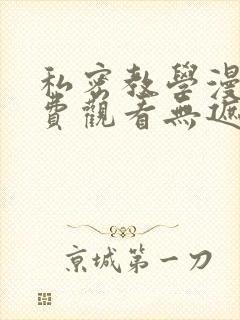 私密教學漫
費觀看無遮
京城第一刀